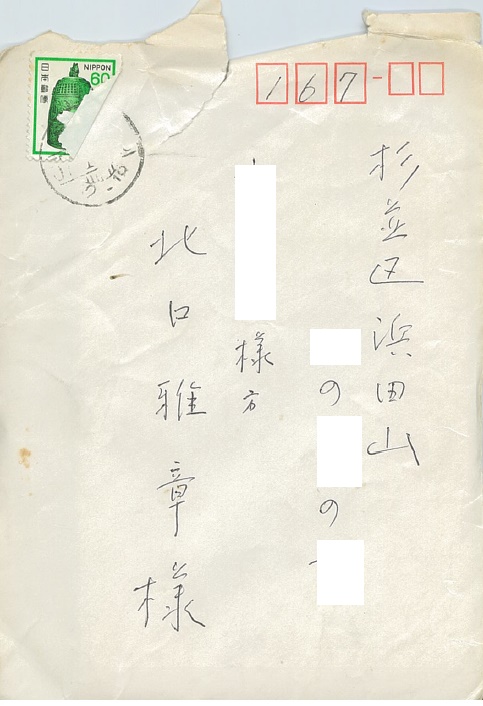 日本郵便
NIPPON
60
167
杉並区浜田山
の
の
様方
北口雅章様